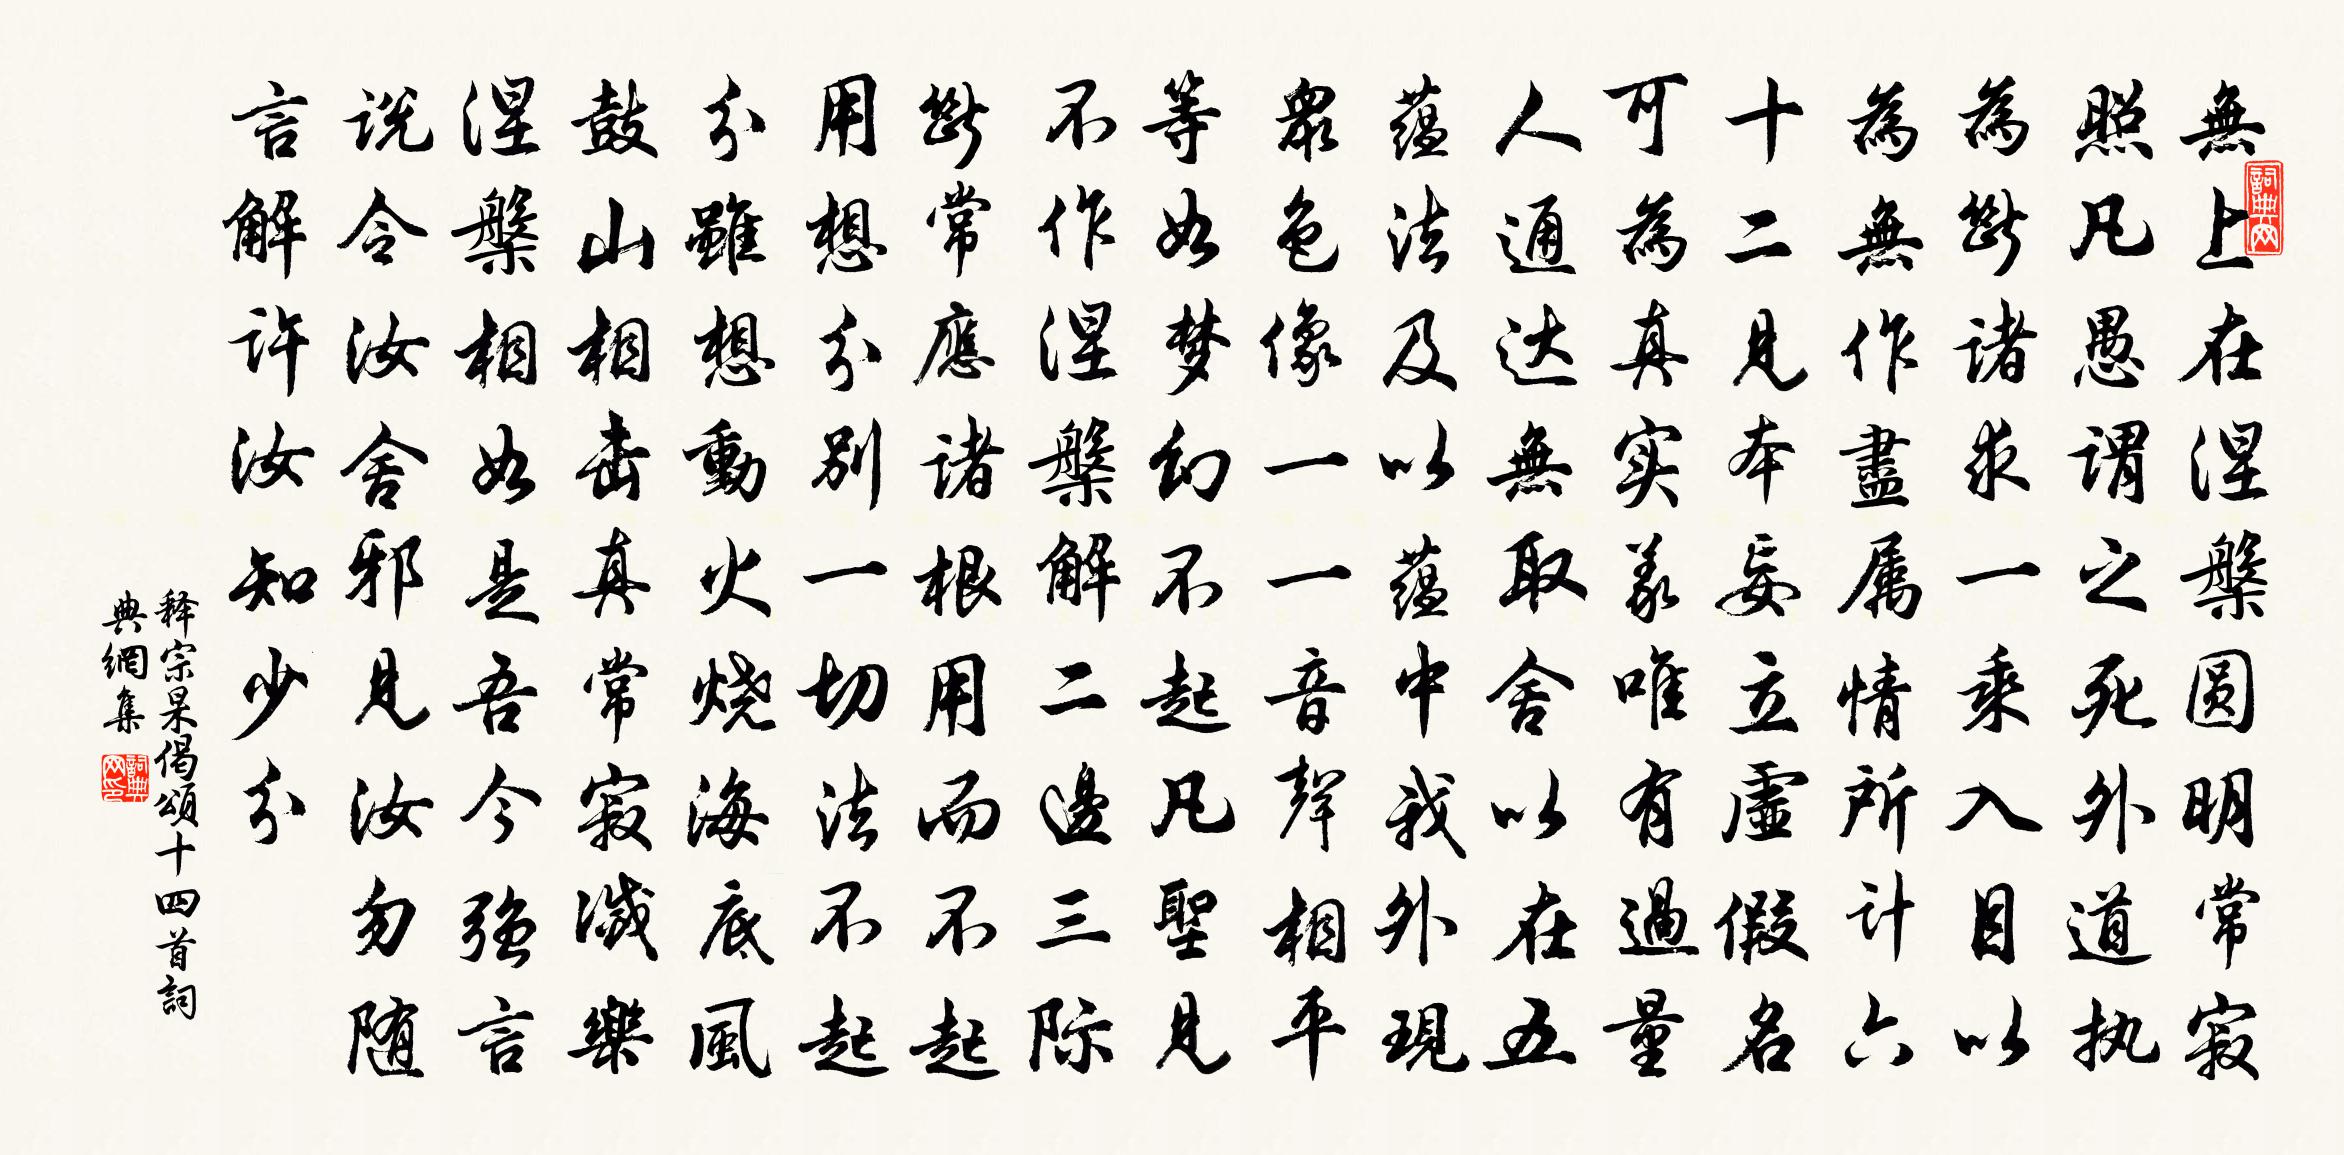 無上在涅槃圆明常寂
照凡愚谓之死外道执
為斷诸求一乘入目以
為無作盡属情所计六
十二見本妄立虚假名
可為真实義唯有過量
人通达無取舍以在五
蕴法及以蕴中我外現
衆色像一一音聲相平
等如梦幻不起凡聖見
不作涅槃解二邊三际
斷常應诸根用而不起
用想分别一切法不起
分雖想動火烧海底風
鼓山相击真常寂滅樂
涅槃相如是吾今強言
说令汝舍邪見汝勿随
言解许汝知少分
释宗杲偈頌十四首詞
典網集
詞典网
詞典网印